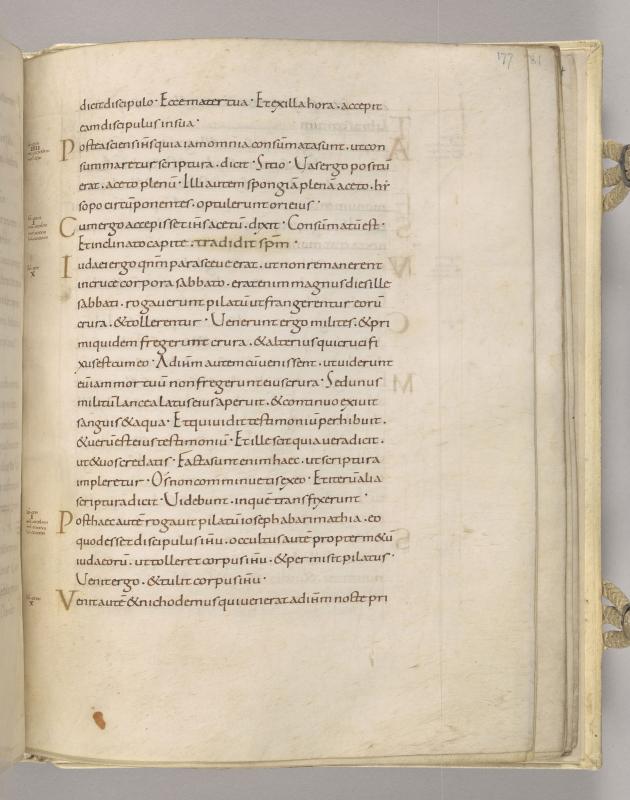 177 81
dicit discipulo · Ecce mater tua · Et ex illa hora . accepit
eam discipulus in sua ·
Postea sciens ih̅s quia iam omnia consūmata sunt . ut con
summaretur scriptura . dicit · Sitio · Vas ergo positū
erat . aceto plenū · Illi autem spongiā plenā aceto . hy
sopo circūponentes . optulerunt ori eius ·
Cum ergo accepisset ih̅s acetū . dixit · Consūmatū est ·
Et inclinato capite . tradidit sp̅m ·
Iudaei ergo qnm̅ parasceue erat . ut non remanerent
in cruce corpora sabbato . erat enim magnus dies ille
sabbati . rogauerunt pilatū ut frangerentur eorū
crura . & tollerentur · Venerunt ergo milites . & pri
mi quidem fregerunt crura . & alterius qui crucifi
xus est cum eo · Ad ih̅m autem cū uenissent . ut uiderunt
eū iam mortuū non fregerunt eius crura · Sed unus
militū lancea latus eius aperuit . & continuo exiuit
sanguis & aqua · Et qui uidit testimoniū perhibuit .
& uerū est eius testimoniū · Et ille scit quia uera dicit .
ut & uos credatis · Facta sunt enim haec . ut scriptura
impleretur · Os non comminuetis ex eo · Et iterū alia
scriptura dicit · Videbunt . in quē transfixerunt ·
Post haec autē rogauit pilatū ioseph ab arimathia . eo
quod esset discipulus ih̅u . occultus autē propter m&ū
iudaeorū . ut tolleret corpus ih̅u . & permisit pilatus ·
Venit ergo . & tulit corpus ih̅u ·
Venit autē & nichodemus qui uenerat ad ih̅m nocte pri